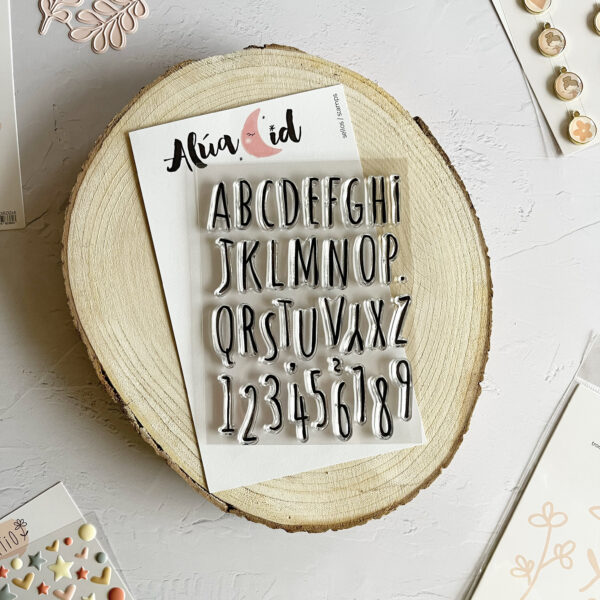 Alúa Cid
sellos / stamps
ABCDEFGHI
JKLMNOP.
QRSTUVYXZ
123456789